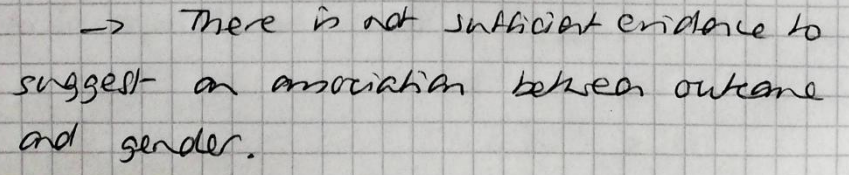 → There is not sufficient evidence to
suggest an association between outcome
and gender.